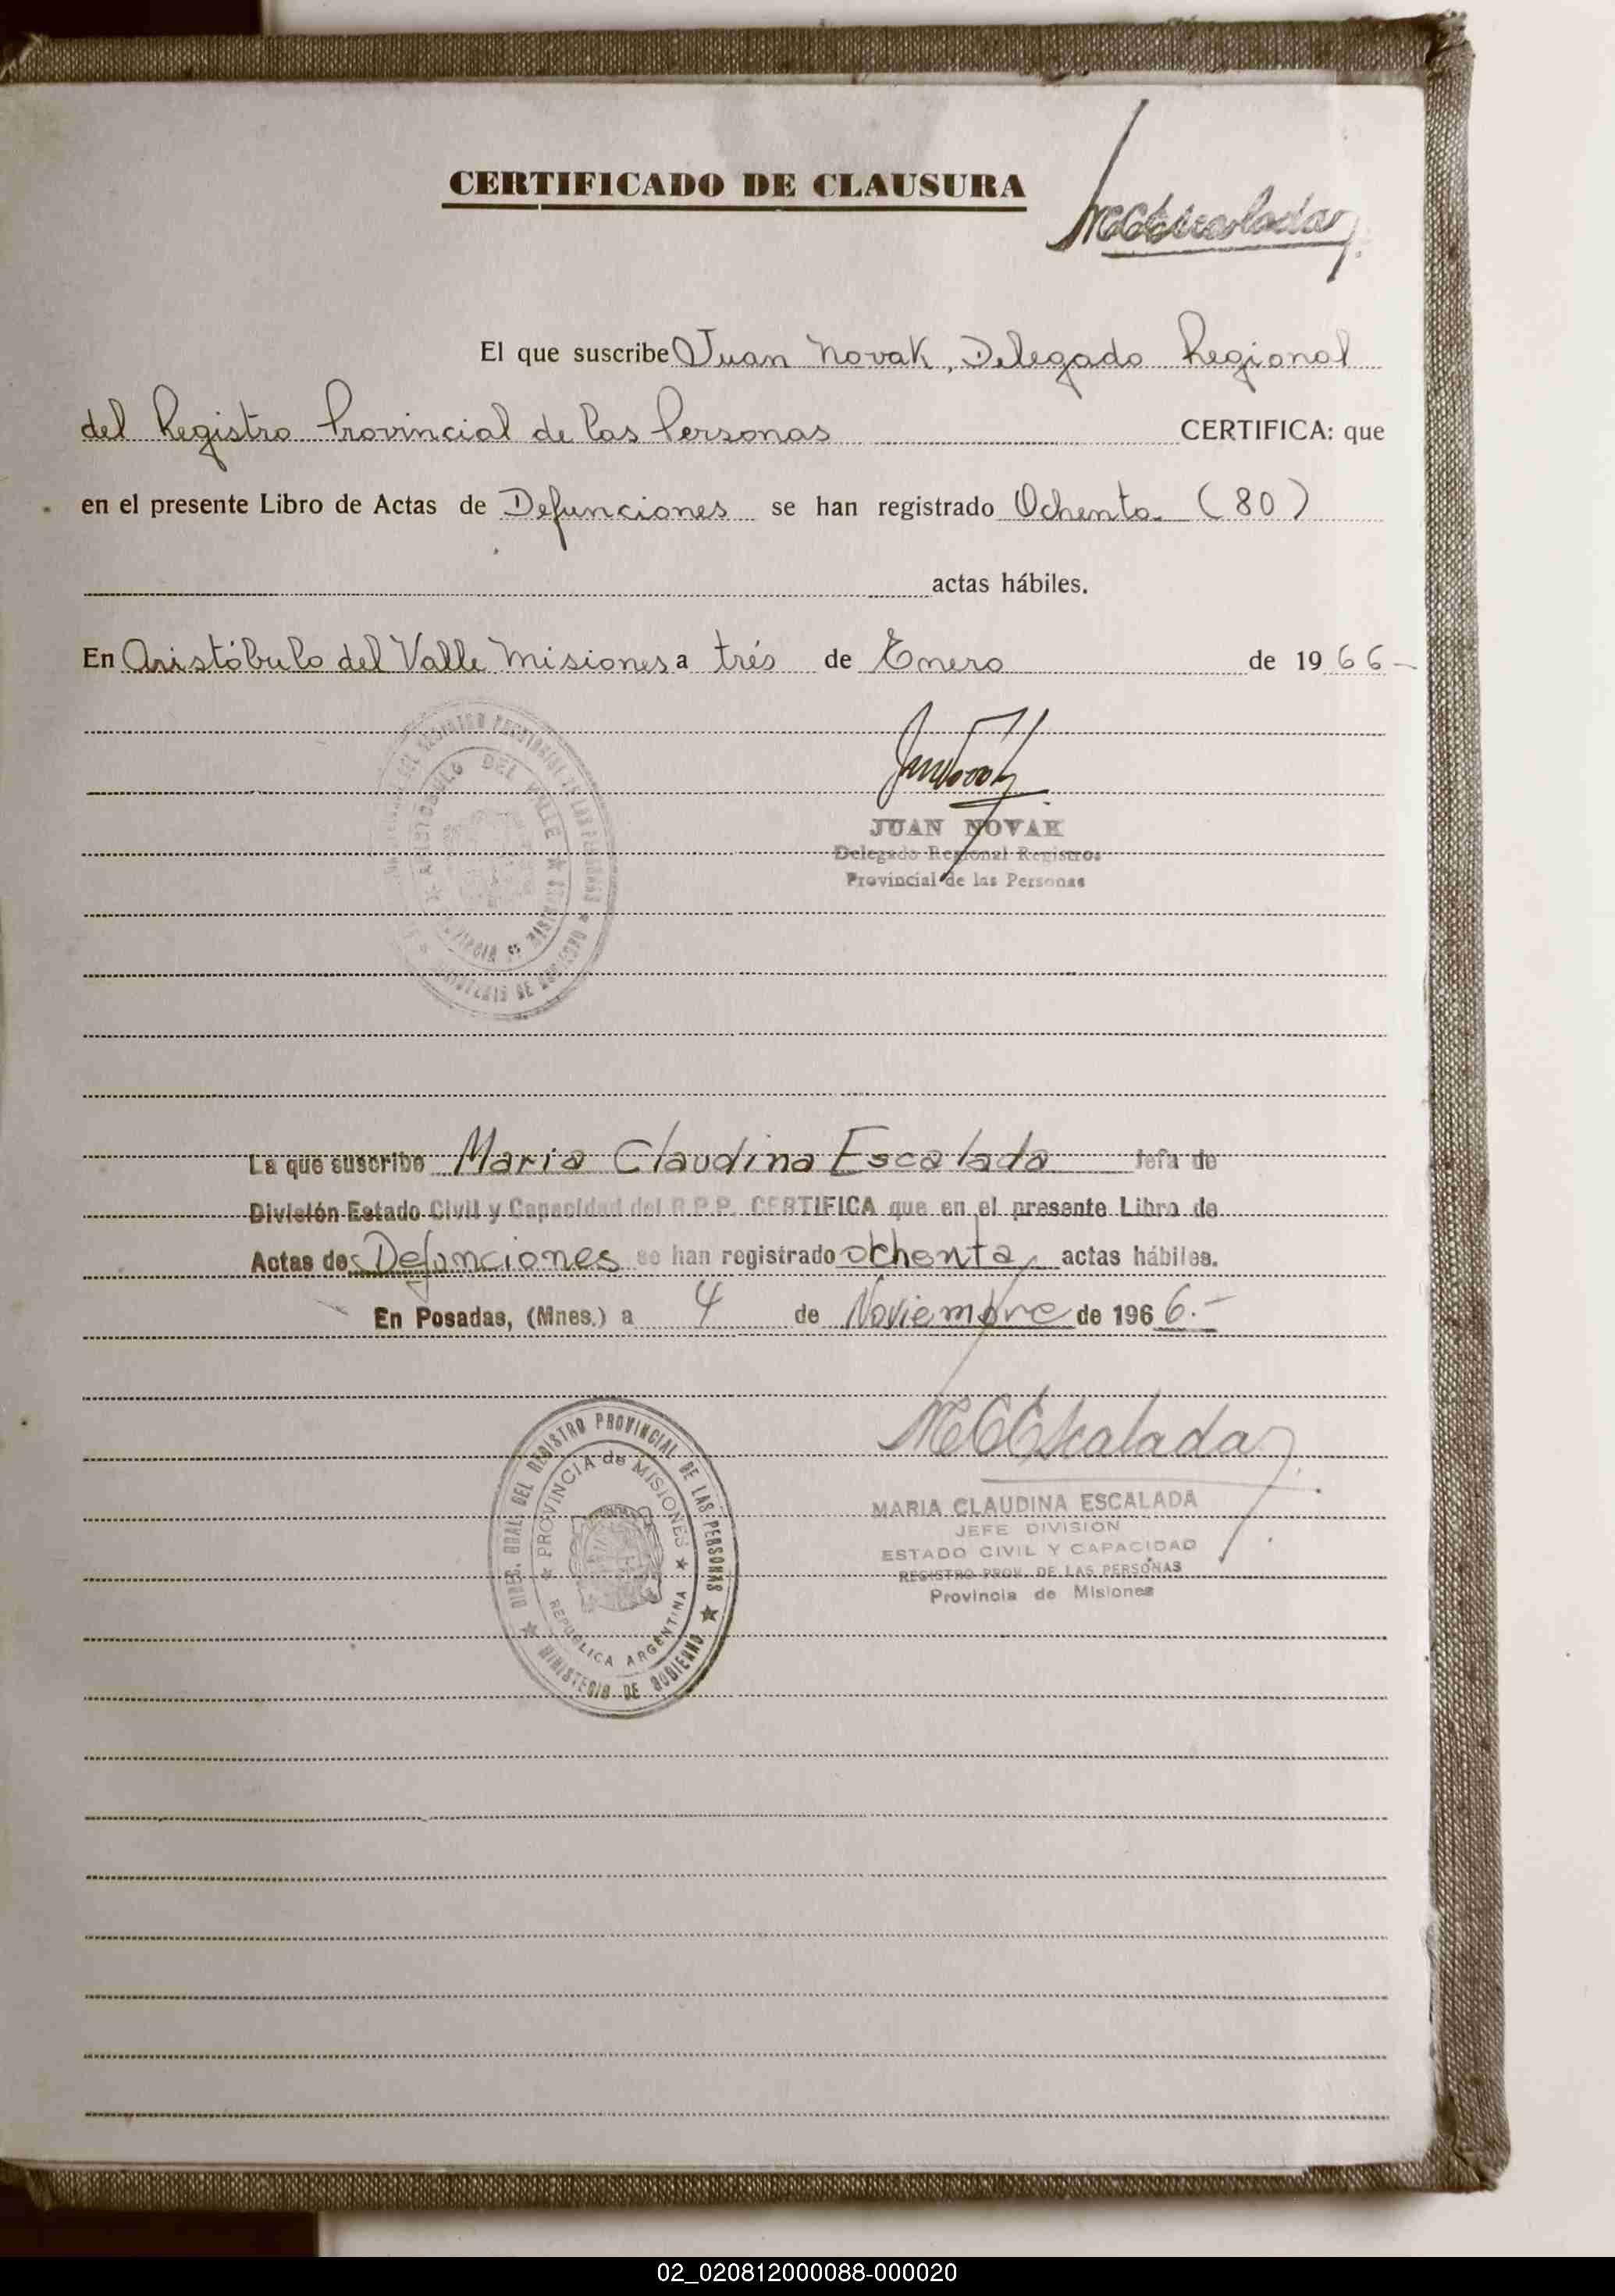 CERTIFICADO DE CLAUSURA
MCEscalada
El que suscribe Juan Novak, Delegado Regional
del Registro Provincial de las Personas CERTIFICA: que
en el presente Libro de Actas de Defunciones se han registrado Ochenta (80)
actas hábiles.
En Aristóbulo del Valle Misiones a trés de Enero de 1966-
ARISTOBULO DEL VALLE
JUAN NOVAK
Delegado Regional Registros
Provincial de las Personas
La que suscribe Maria Claudina Escalada Jefa de
División Estado Civil y Capacidad del R.P.P. CERTIFICA que en el presente Libro de
Actas de Defunciones se han registrado ochenta actas hábiles.
En Posadas, (Mnes.) a 4 de Noviembre de 1966.-
MCEscalada
DIREC. GRAL. DEL REGISTRO PROVINCIAL DE LAS PERSONAS
MINISTERIO DE GOBIERNO
PROVINCIA de MISIONES
REPUBLICA ARGENTINA
MARIA CLAUDINA ESCALADA
JEFE DIVISION
ESTADO CIVIL Y CAPACIDAD
REGISTRO PROV. DE LAS PERSONAS
Provincia de Misiones
02_020812000088-000020